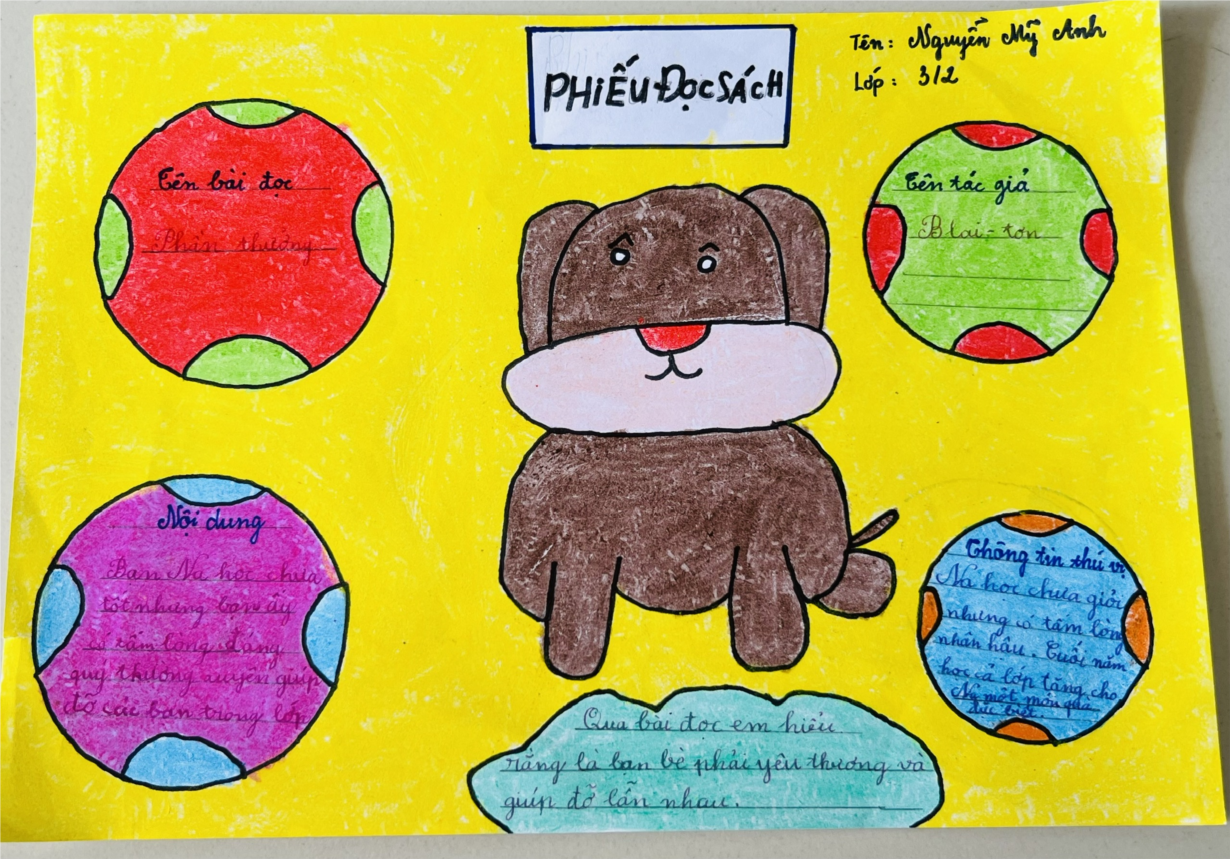 PHIẾU ĐỌC SÁCH
Tên: Nguyễn Mỹ Anh
Lớp: 3/2
Tên bài đọc
Phần thưởng
Tên tác giả
Blai-tơn
Nội dung
Bạn Na học chưa
tốt nhưng bạn ấy
có tấm lòng đáng
quý thường xuyên giúp
đỡ các bạn trong lớp
Thông tin thú vị
Na học chưa giỏi
nhưng có tấm lòng
nhân hậu. Cuối năm
học cả lớp tặng cho
Na một món quà
đặc biệt.
Qua bài đọc em hiểu
rằng là bạn bè phải yêu thương và
giúp đỡ lẫn nhau.